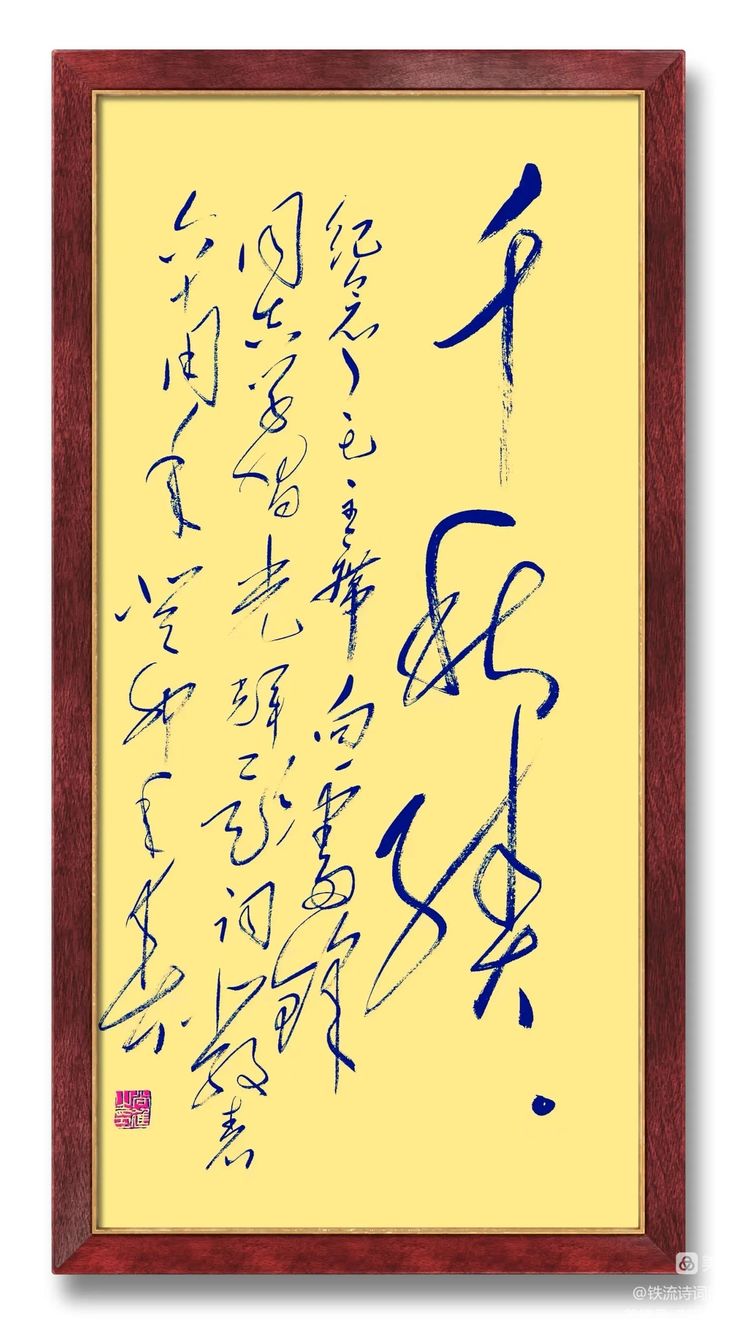 千秋绩
纪念毛主席向雷锋
同志学习光辉题词发表
六十周年癸卯年春
@铁流诗词